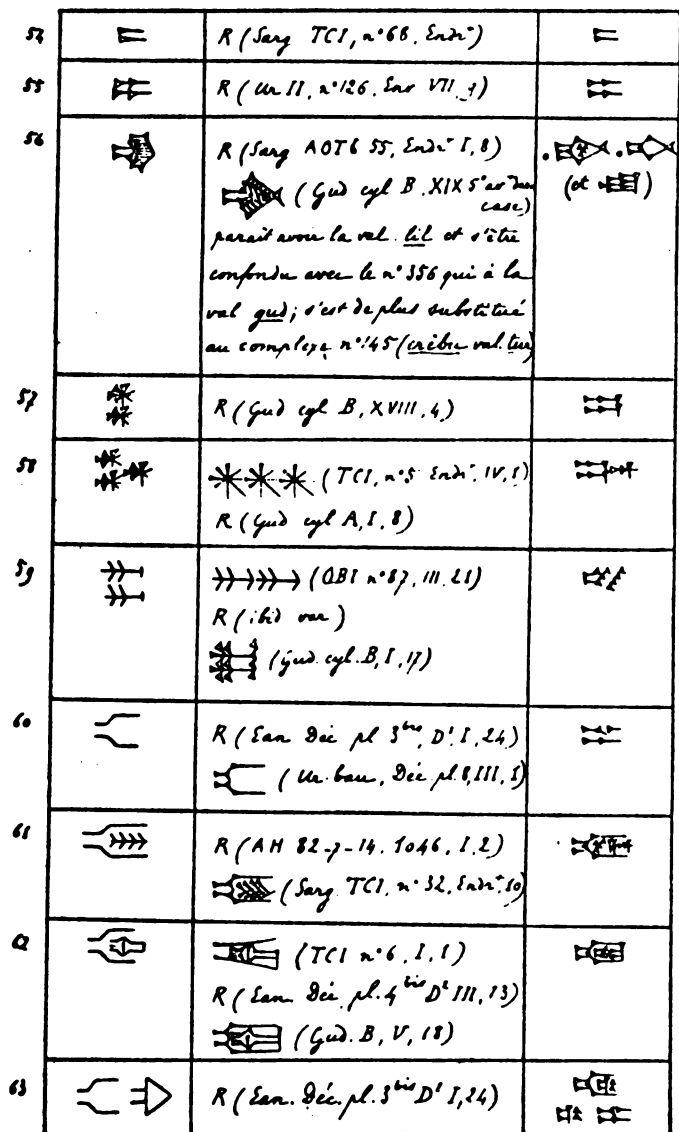 54 R (Sarg TCI, n° 68, Endrt)
55 R (Ur II, n° 126, Env VII, 9)
56 R (Sarg AOT6 55, Endrt I, 8)
(Gud cyl B. XIX 5e av dern case)
(et )
paraît avoir la val. lil et s'être
confondu avec le n° 356 qui à la
val gud; s'est de plus substitué
au complexe n° 145 (val. tur)
57 R (Gud cyl B, XVIII, 4)
58 (TCI, n° 5 Endrt, IV, 1)
R (Gud cyl A, I, 8)
59 (OBI n° 87, III. 21)
R (ibid var)
(Gud. cyl. B, I, 17)
60 R (Ean Déc pl 3bis, D1, I, 24)
(Ur bau, Déc pl. 8, III, 1)
61 R (AH 82-7-14, 1046, I, 2)
(Sarg TCI, n° 32, Endrt, 10)
62 (TCI n° 6, I, 1)
R (Ean. Déc. pl. 4bis D2 III, 13)
(Gud. B, V, 18)
63 R (Ean. Déc. pl. 3bis D1 I, 24)